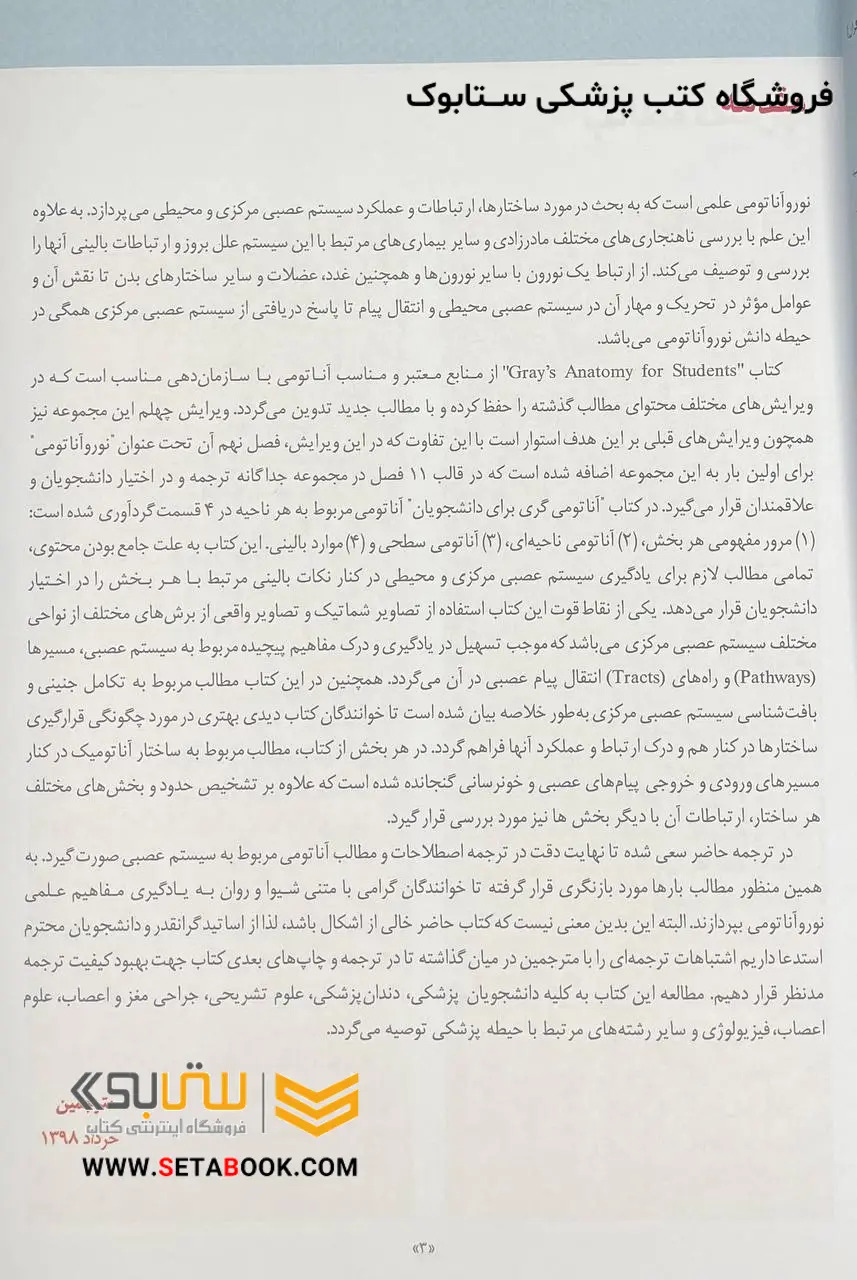 فروشگاه کتب پزشکی ستابوک
مقدمه
نوروآناتومی علمی است که به بحث در مورد ساختارها، ارتباطات و عملکرد سیستم عصبی مرکزی و محیطی می‌پردازد. به علاوه
این علم با بررسی ناهنجاری‌های مختلف مادرزادی و سایر بیماری‌های مرتبط با این سیستم علل بروز و ارتباطات بالینی آنها را
بررسی و توصیف می‌کند. از ارتباط یک نورون با سایر نورون‌ها و همچنین غدد، عضلات و سایر ساختارهای بدن تا نقش آن و
عوامل مؤثر در تحریک و مهار آن در سیستم عصبی محیطی و انتقال پیام تا پاسخ دریافتی از سیستم عصبی مرکزی همگی در
حیطه دانش نوروآناتومی می‌باشد.
کتاب "Gray's Anatomy for Students" از منابع معتبر و مناسب آناتومی با سازمان‌دهی مناسب است که در
ویرایش‌های مختلف محتوای مطالب گذشته را حفظ کرده و با مطالب جدید تدوین می‌گردد. ویرایش چهلم این مجموعه نیز
همچون ویرایش‌های قبلی بر این هدف استوار است با این تفاوت که در این ویرایش، فصل نهم آن تحت عنوان "نوروآناتومی"
برای اولین بار به این مجموعه اضافه شده است که در قالب ۱۱ فصل در مجموعه جداگانه ترجمه و در اختیار دانشجویان و
علاقمندان قرار می‌گیرد. در کتاب "آناتومی گری برای دانشجویان" آناتومی مربوط به هر ناحیه در ۴ قسمت گردآوری شده است:
(۱) مرور مفهومی هر بخش، (۲) آناتومی ناحیه‌ای، (۳) آناتومی سطحی و (۴) موارد بالینی. این کتاب به علت جامع بودن محتوی،
تمامی مطالب لازم برای یادگیری سیستم عصبی مرکزی و محیطی در کنار نکات بالینی مرتبط با هر بخش را در اختیار
دانشجویان قرار می‌دهد. یکی از نقاط قوت این کتاب استفاده از تصاویر شماتیک و تصاویر واقعی از برش‌های مختلف از نواحی
مختلف سیستم عصبی مرکزی می‌باشد که موجب تسهیل در یادگیری و درک مفاهیم پیچیده مربوط به سیستم عصبی، مسیرها
(Pathways) و راه‌های (Tracts) انتقال پیام عصبی در آن می‌گردد. همچنین در این کتاب مطالب مربوط به تکامل جنینی و
بافت‌شناسی سیستم عصبی مرکزی به‌طور خلاصه بیان شده است تا خوانندگان کتاب دیدی بهتری در مورد چگونگی قرارگیری
ساختارها در کنار هم و درک ارتباط و عملکرد آنها فراهم گردد. در هر بخش از کتاب، مطالب مربوط به ساختار آناتومیک در کنار
مسیرهای ورودی و خروجی پیام‌های عصبی و خونرسانی گنجانده شده است که علاوه بر تشخیص حدود و بخش‌های مختلف
هر ساختار، ارتباطات آن با دیگر بخش ها نیز مورد بررسی قرار گیرد.
در ترجمه حاضر سعی شده تا نهایت دقت در ترجمه اصطلاحات و مطالب آناتومی مربوط به سیستم عصبی صورت گیرد. به
همین منظور مطالب بارها مورد بازنگری قرار گرفته تا خوانندگان گرامی با متنی شیوا و روان به یادگیری مفاهیم علمی
نوروآناتومی بپردازند. البته این بدین معنی نیست که کتاب حاضر خالی از اشکال باشد، لذا از اساتید گرانقدر و دانشجویان محترم
استدعا داریم اشتباهات ترجمه‌ای را با مترجمین در میان گذاشته تا در ترجمه و چاپ‌های بعدی کتاب جهت بهبود کیفیت ترجمه
مدنظر قرار دهیم. مطالعه این کتاب به کلیه دانشجویان پزشکی، دندان‌پزشکی، علوم تشریحی، جراحی مغز و اعصاب، علوم
اعصاب، فیزیولوژی و سایر رشته‌های مرتبط با حیطه پزشکی توصیه می‌گردد.
مترجمین
خرداد ۱۳۹۸
ستابوک
فروشگاه اینترنتی کتاب
WWW.SETABOOK.COM
«۳»